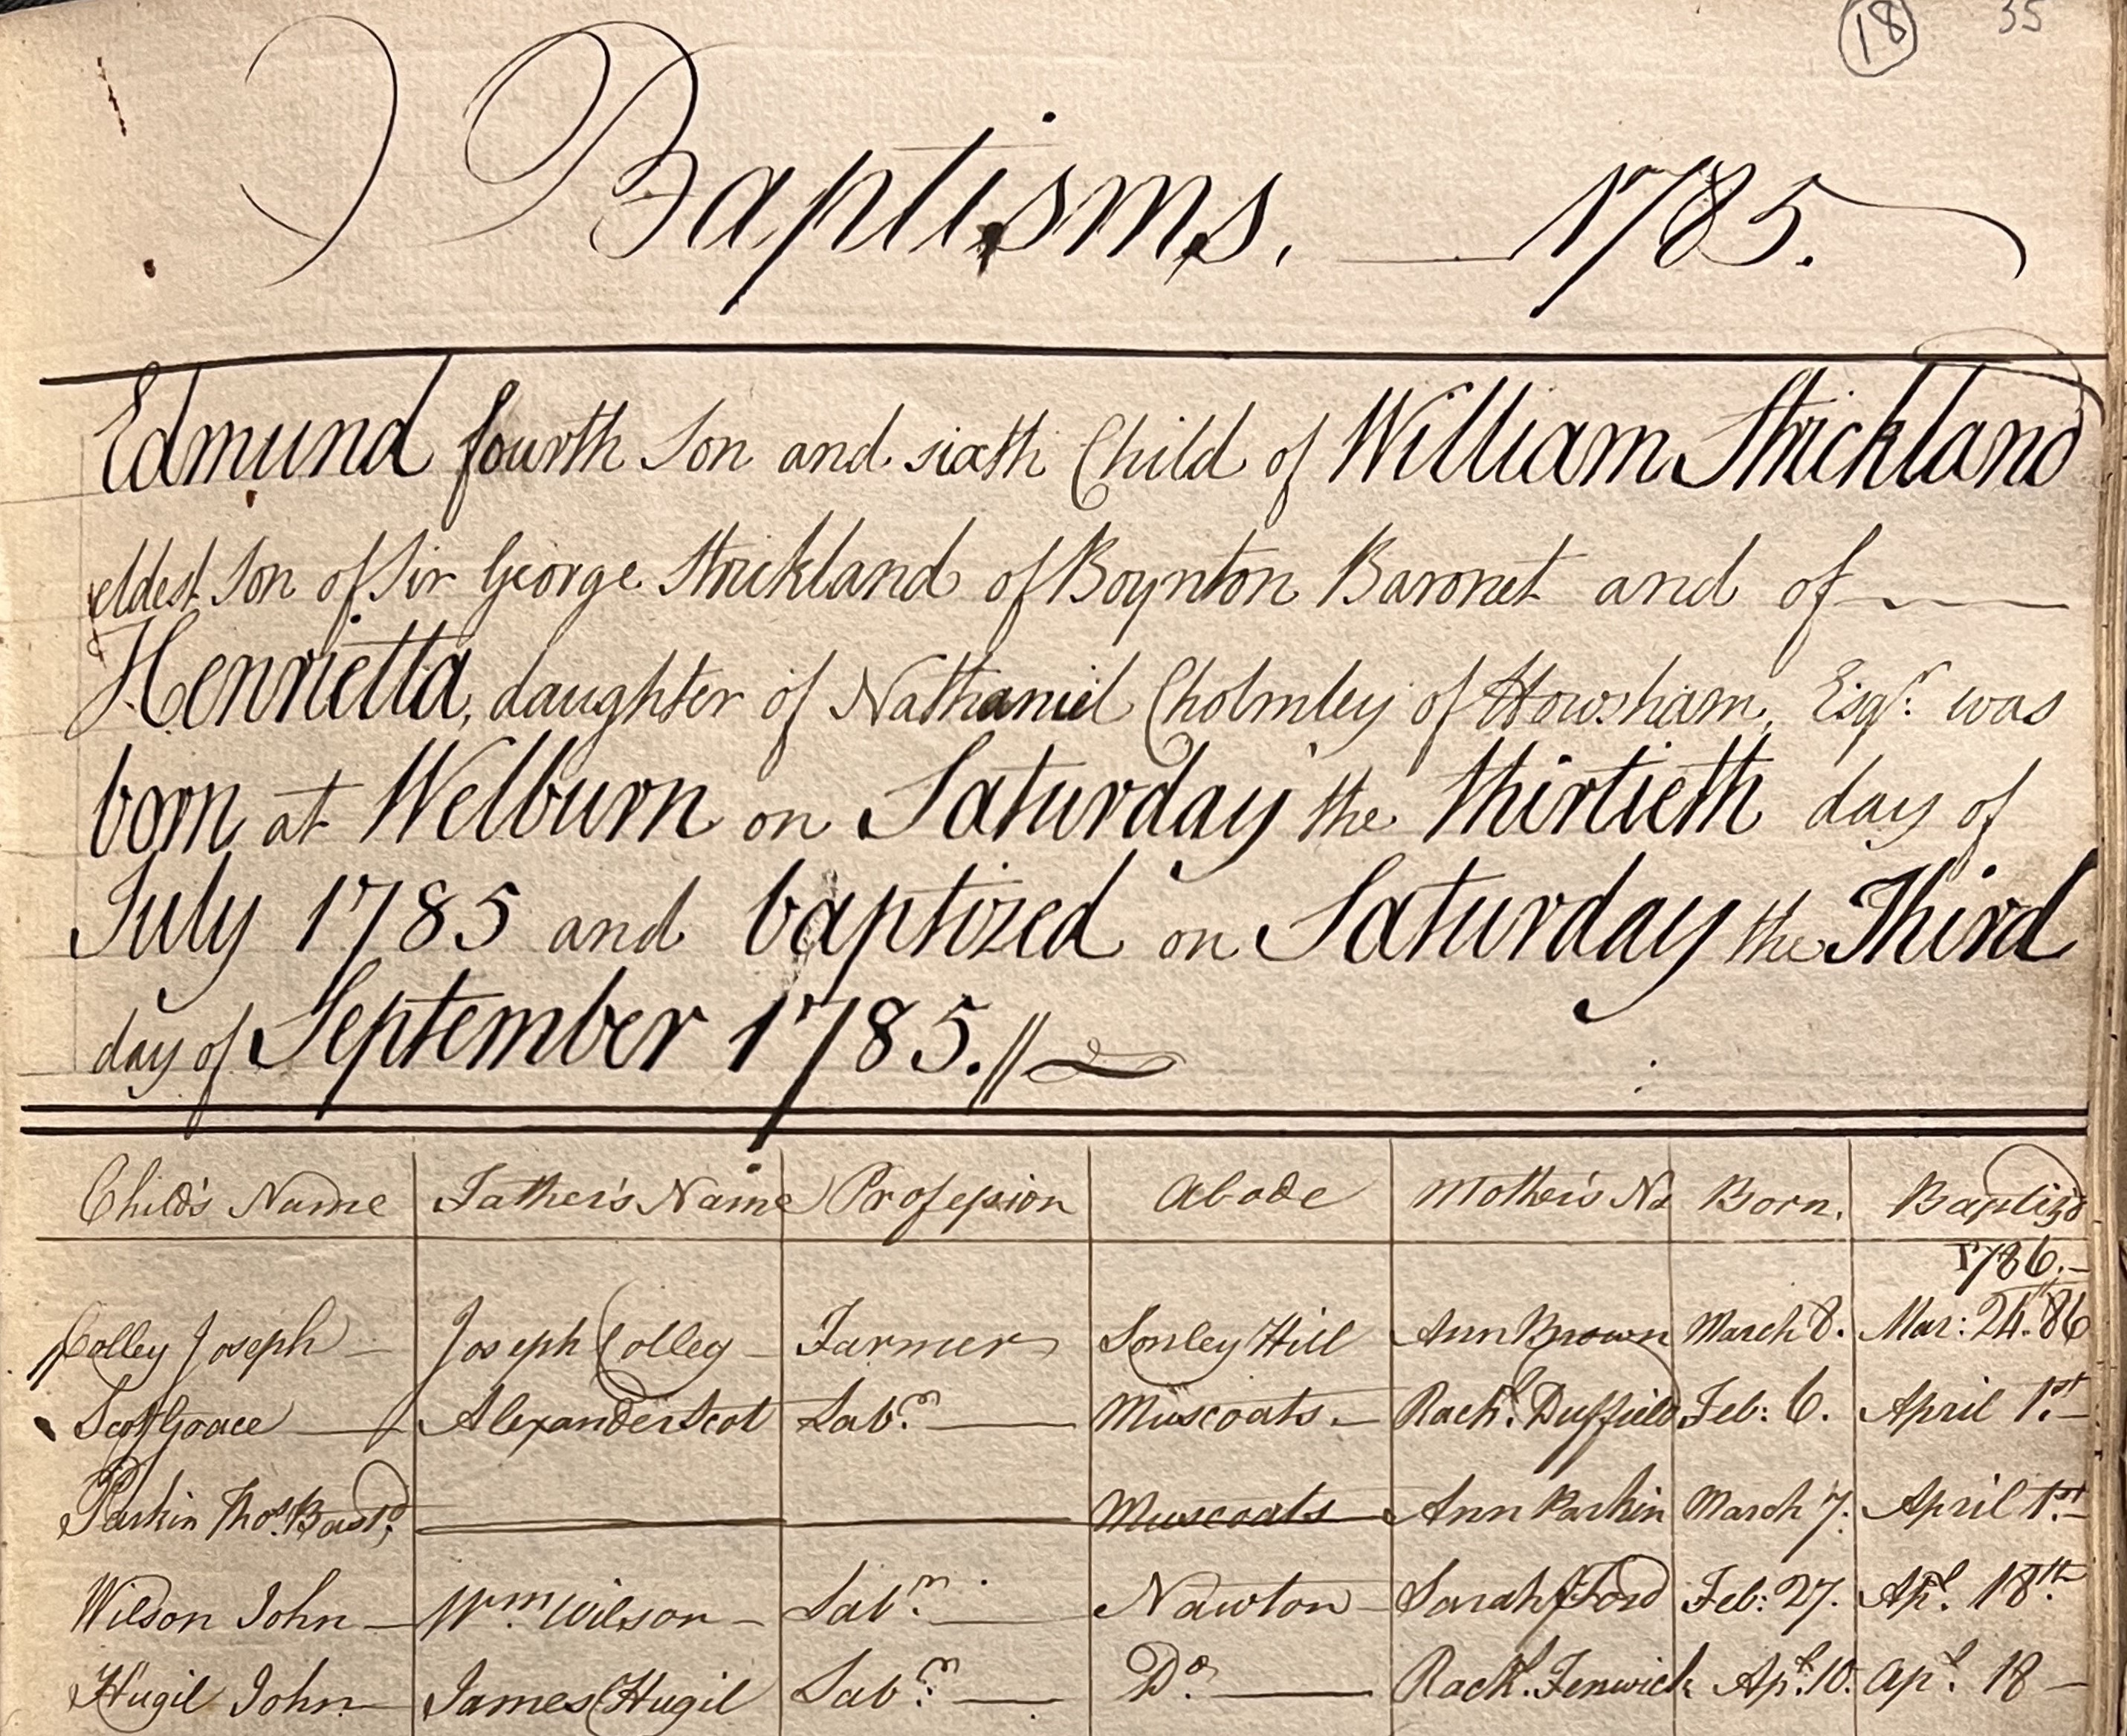 18 35
Baptisms. 1785.
Edmund fourth Son and sixth Child of William Strickland
eldest Son of Sir George Strickland of Boynton Baronet and of
Henrietta, daughter of Nathaniel Cholmley of Howsham, Esqr. was
born at Welburn on Saturday the thirtieth day of
July 1785 and baptized on Saturday the Third
day of September 1785.//
Child's Name Father's Name Profession Abode Mother's Na Born. Baptizd
1786.
Colley Joseph Joseph Colley Farmer Sonley Hill Ann Brown March 8. Mar: 24. 86
Scot Grace Alexander Scot Labr. Muscoats. Rachl. Duffield Feb: 6. April 1st.
Parkin Thos. Bastd. Muscoats Ann Parkin March 7. April 1st.
Wilson John Wm. Wilson Labr. Nawton Sarah Ford Feb: 27. Apl. 18th.
Hugil John James Hugil Labr. Do. Rachl. Fenwick Apl. 10. Apl. 18